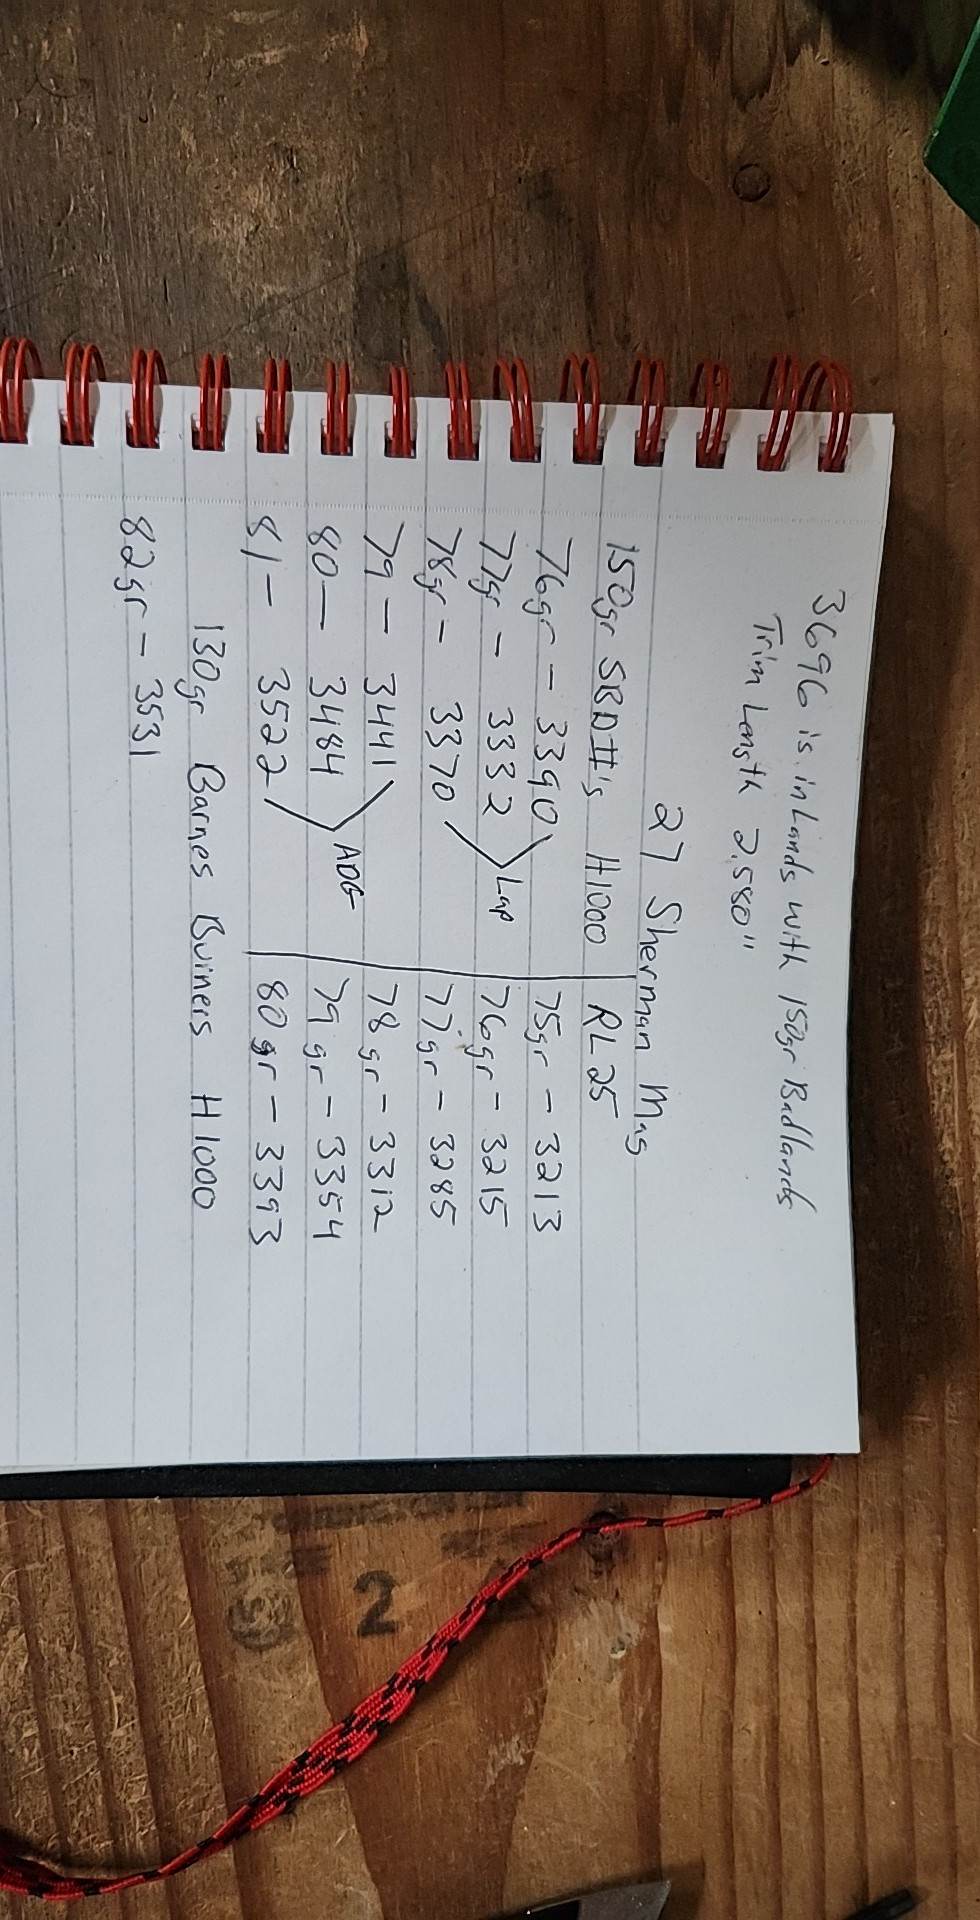 3696 is in Lands with 150gr Badlands
Trim Length 2.580"
27 Sherman Mag
150gr SBDII's H1000 RL25
76gr - 3390 75gr - 3213
77gr - 3332 Lap 76gr - 3215
78gr - 3370 77gr - 3285
79 - 3441 78gr - 3312
80 - 3484 ADG 79gr - 3354
81 - 3522 80gr - 3393
130gr Barnes Burners H1000
82gr - 3531
2